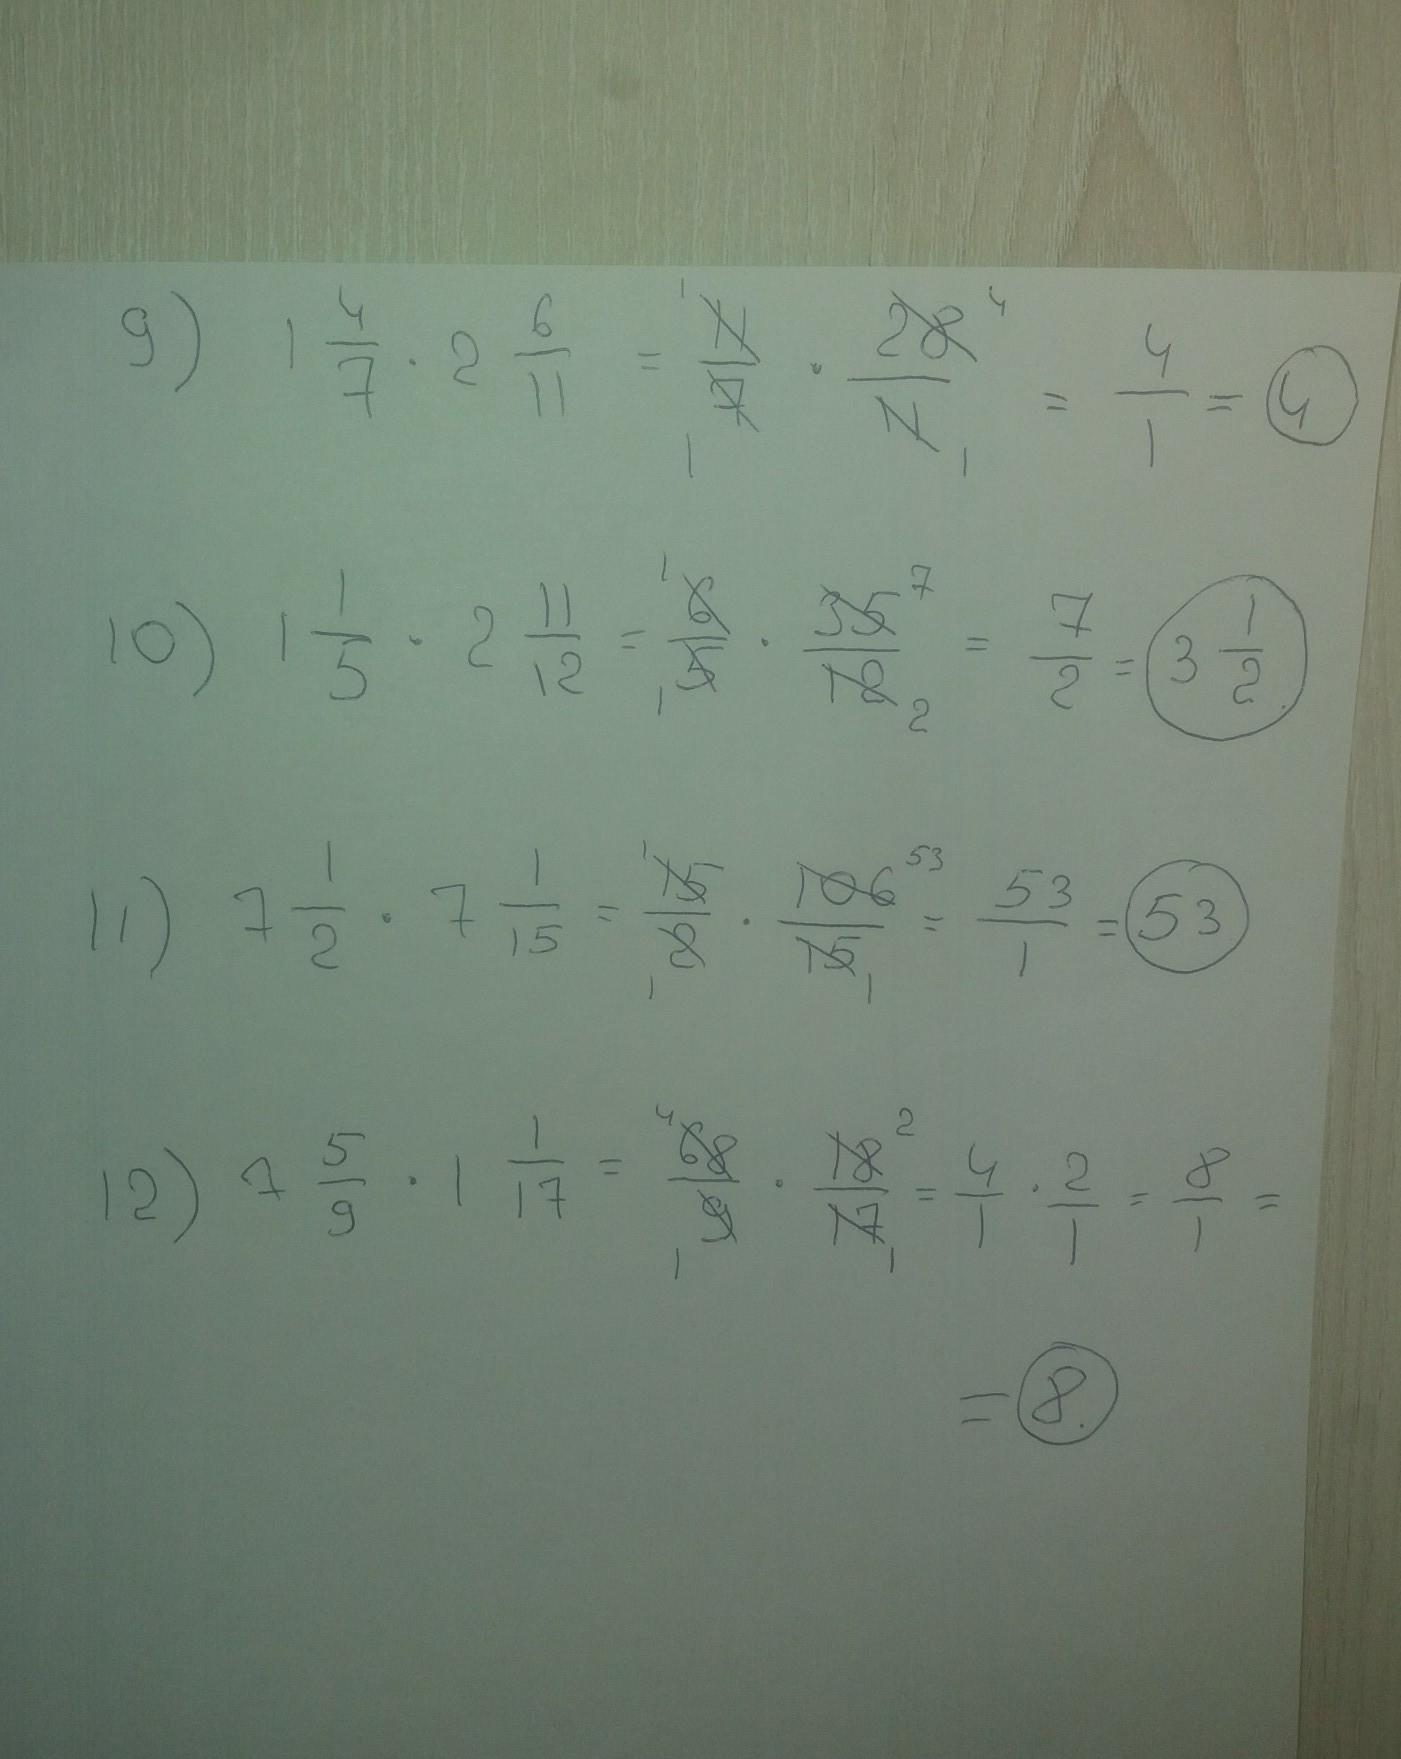 9) 1 4/7 · 2 6/11 = 11/7 · 28/11 = 4/1 = 4
10) 1 1/5 · 2 11/12 = 6/5 · 35/12 = 7/2 = 3 1/2
11) 7 1/2 · 7 1/15 = 15/2 · 106/15 = 53/1 = 53
12) 7 5/9 · 1 1/17 = 68/9 · 18/17 = 4/1 · 2/1 = 8/1 =
= 8.